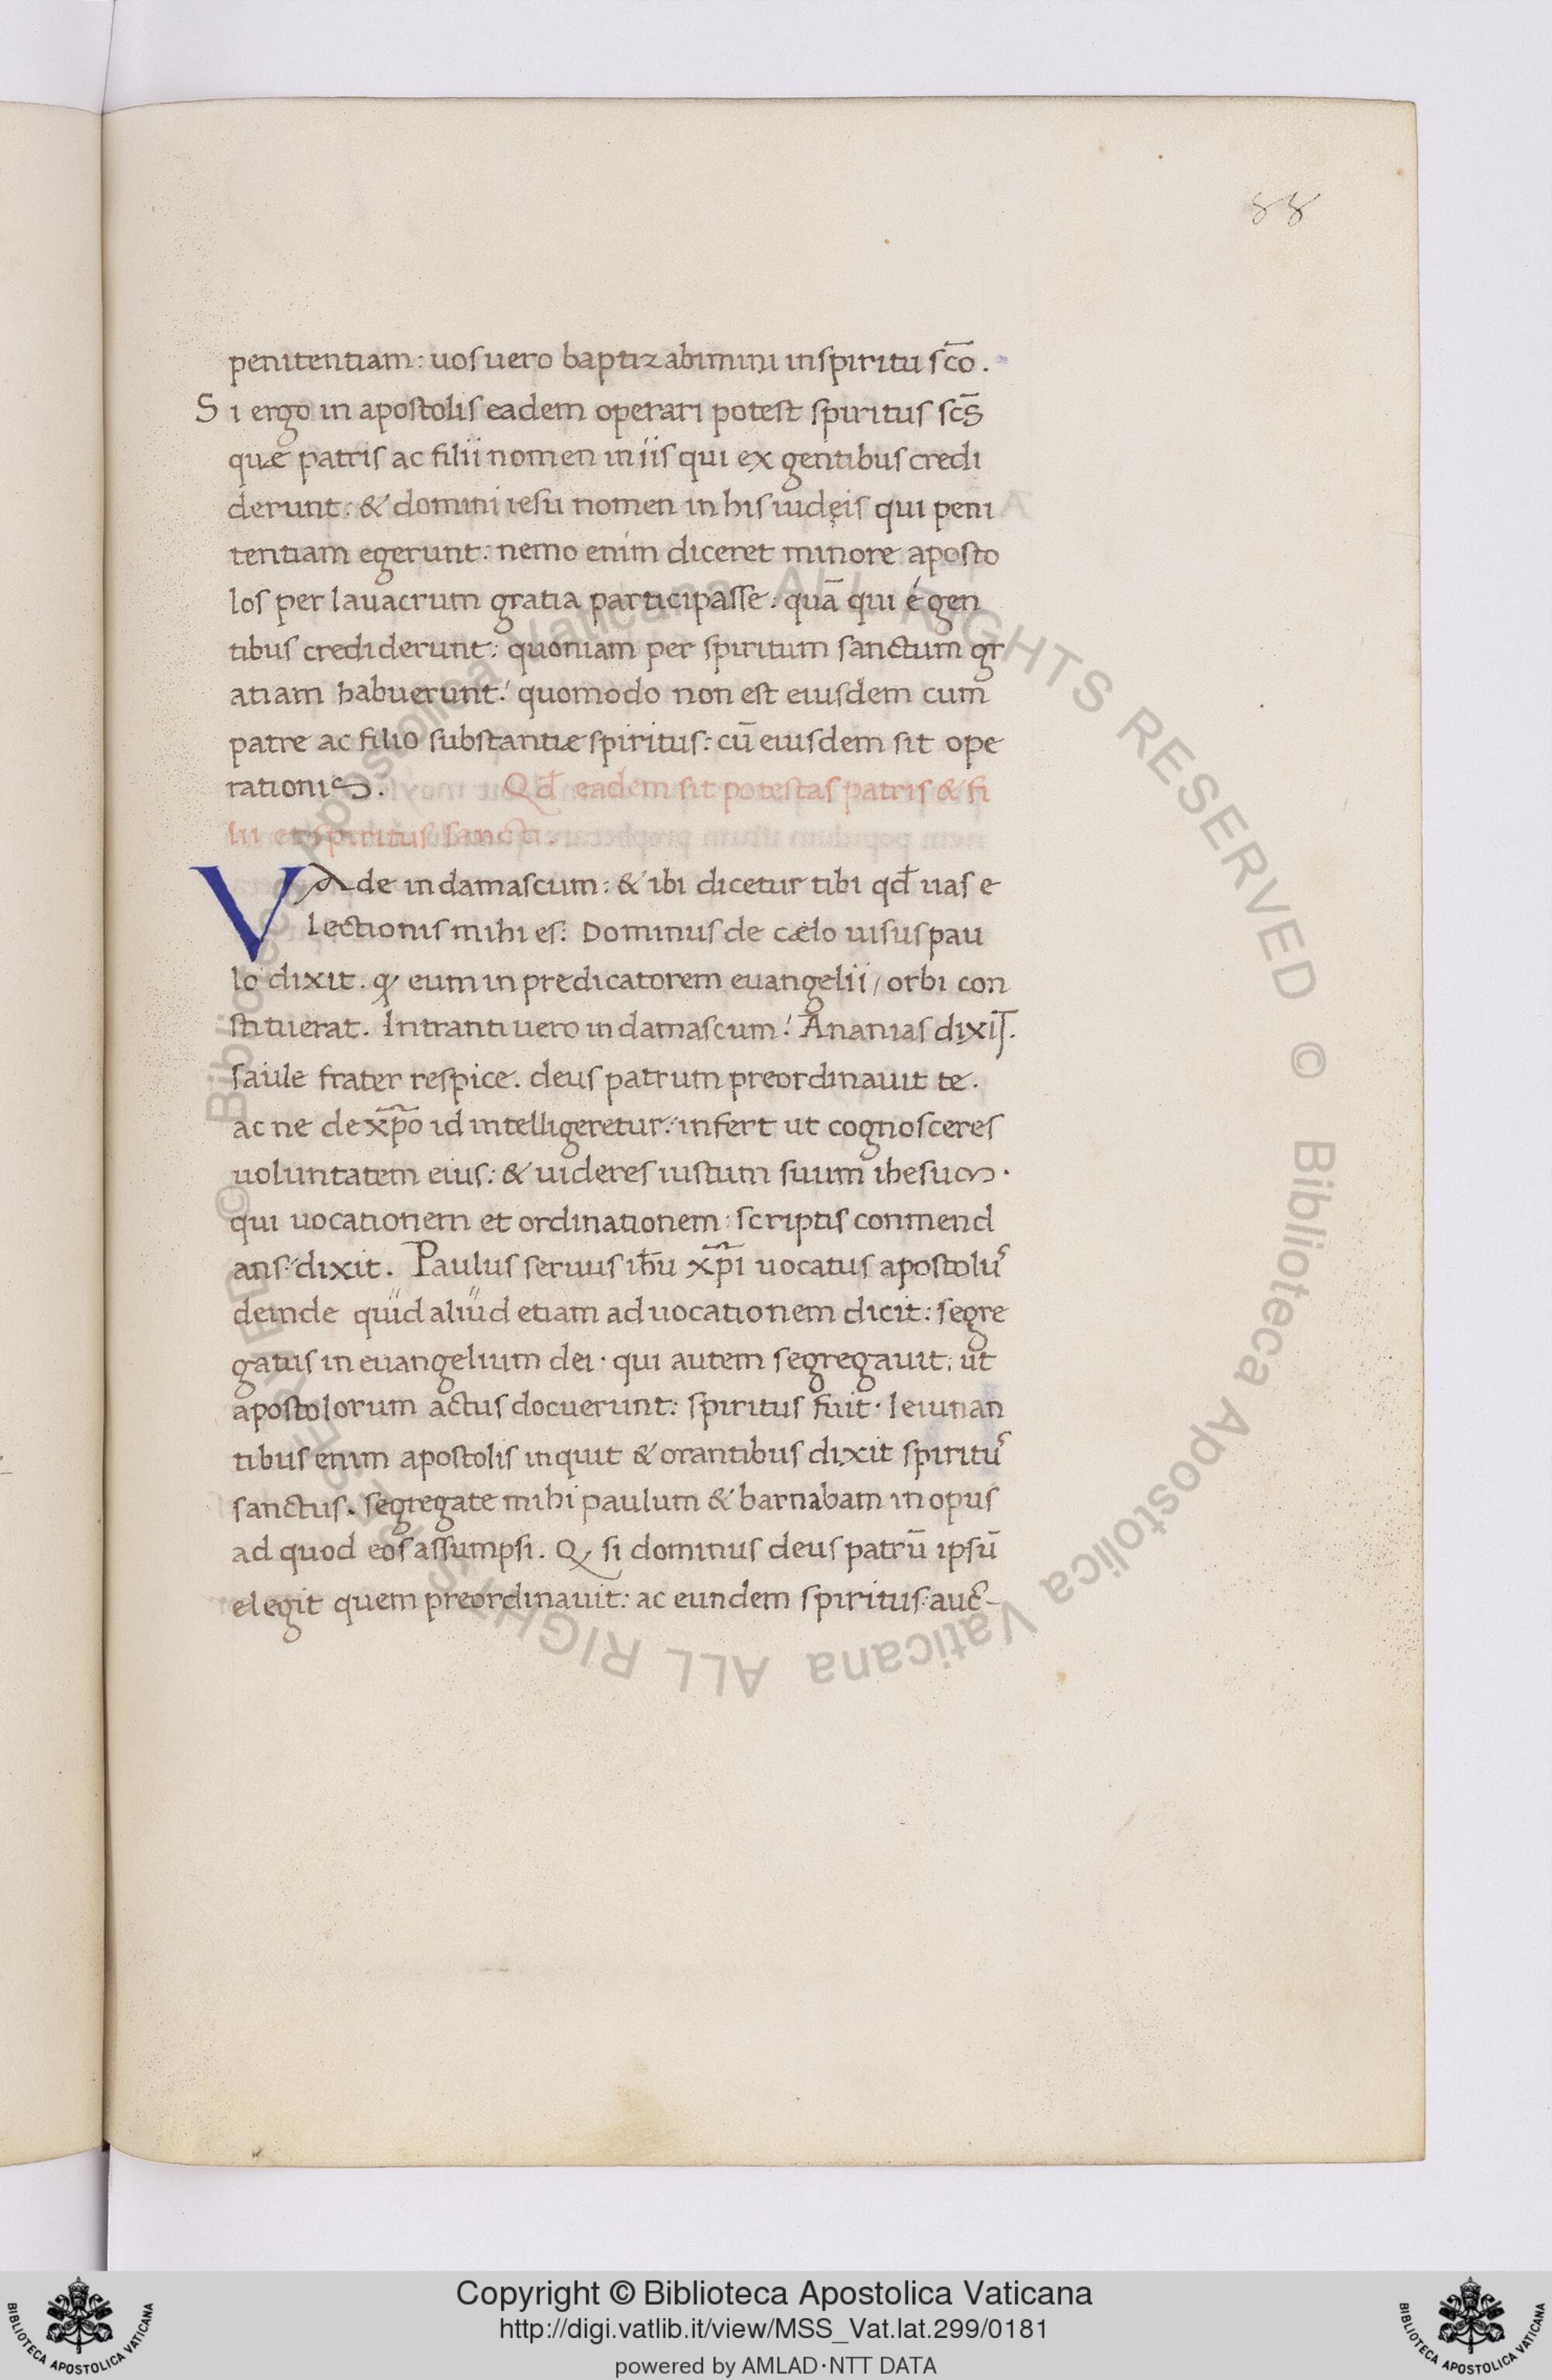 88
penitentiam: uos uero baptizabimini in spiritu sc̄o.
Si ergo in apostolis eadem operari potest spiritus sc̄s
quæ patris ac filii nomen in iis qui ex gentibus credi
derunt: & domini iesu nomen in his iudęis qui peni
tentiam egerunt: nemo enim diceret minore aposto
los per lauacrum gratia participasse: quā qui é gen
tibus crediderunt: quoniam per spiritum sanctum gr
atiam habuerunt: quomodo non est eiusdem cum
patre ac filio substantiæ spiritus: cū eiusdem sit ope
rationis. Qd̄ eadem sit potestas patris & fi
lii et spiritus sancti.
Vade in damascum: & ibi dicetur tibi qd̄ uas e
lectionis mihi es: Dominus de cælo uisus pau
lo dixit. ꝙ eum in predicatorem euangelii / orbi con
stituerat. Intranti uero in damascum: Ananias dixit.
saule frater respice. deus patrum preordinauit te.
ac ne de xp̄o id intelligeretur: infert ut cognosceres
uoluntatem eius: & uideres iustum suum ihesum.
qui uocationem et ordinationem: scriptis conmend
ans: dixit. Paulus seruus ih̄u xp̄i uocatus apostolus
deinde quid aliud etiam ad uocationem dicit: segre
gatus in euangelium dei. qui autem segregauit: ut
apostolorum actus docuerunt: spiritus fuit. Ieiunan
tibus enim apostolis inquit & orantibus dixit spiritus
sanctus. segregate mihi paulum & barnabam in opus
ad quod eos assumpsi. Ꝙ si dominus deus patrū ipsū
elegit quem preordinauit: ac eundem spiritus: auc̄-
© Biblioteca Apostolica Vaticana ALL RIGHTS RESERVED © Biblioteca Apostolica Vaticana ALL RIGHTS RESERVED
Copyright © Biblioteca Apostolica Vaticana
http://digi.vatlib.it/view/MSS_Vat.lat.299/0181
powered by AMLAD·NTT DATA
BIBLIOTECA APOSTOLICA VATICANA
BIBLIOTECA APOSTOLICA VATICANA